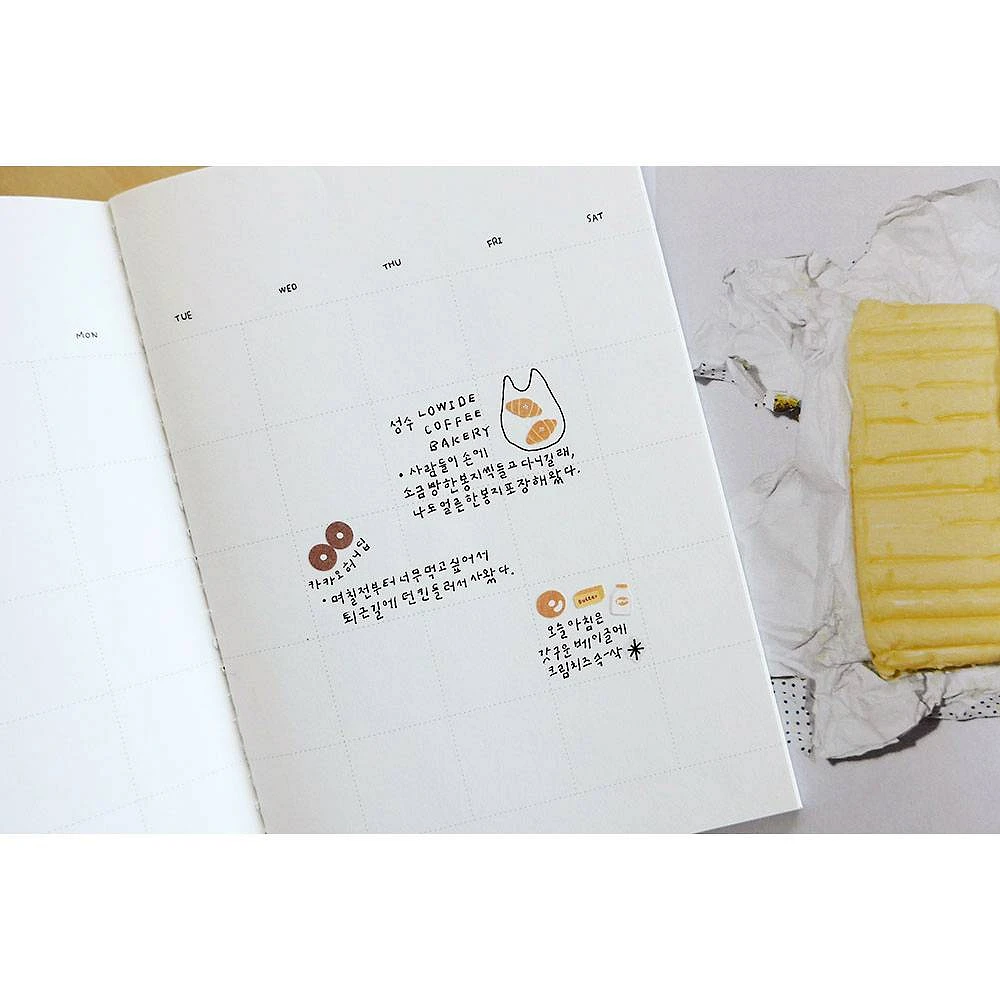 MON
TUE
WED
THU
FRI
SAT
성수 LOWIDE
COFFEE
BAKERY
• 사람들이 손에
소금빵한봉지씩들고다니길래,
나도얼른한봉지포장해왔다.
카카오허니딥
• 며칠전부터너무먹고싶어서
퇴근길에던킨들러서사왔다.
Butter
오늘아침은
갓구운베이글에
크림치즈속-삭